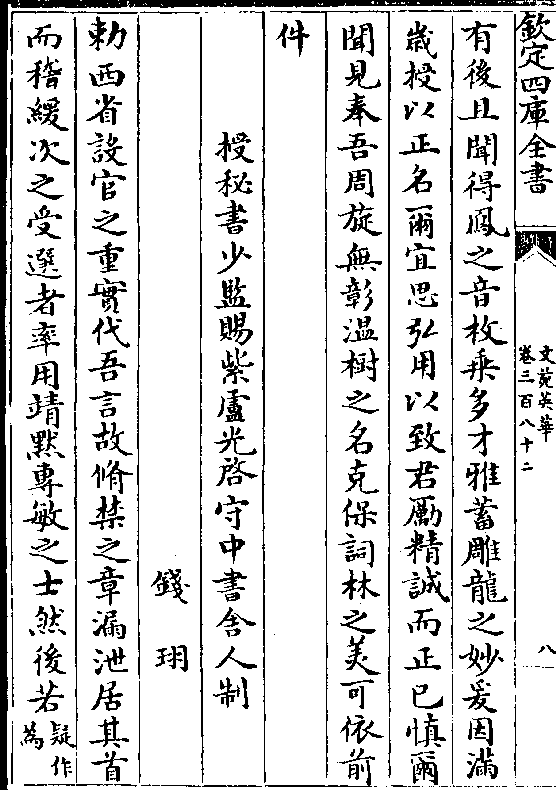 欽定四庫全書
文苑英華
卷三百八十二
八
有後且聞得鳳之音枚乗多才雅蓄雕龍之妙爰因滿
歲授以正名爾宜思弘用以致君勵精誠而正已慎爾
聞見奉吾周旋無彰温樹之名克保詞林之美可依前
件
授秘書少監賜紫盧光啓守中書舍人制
錢珝
勅西省設官之重實代吾言故脩禁之章漏泄居其首
而稽緩次之受選者率用靖黙專敏之士然後若疑作為